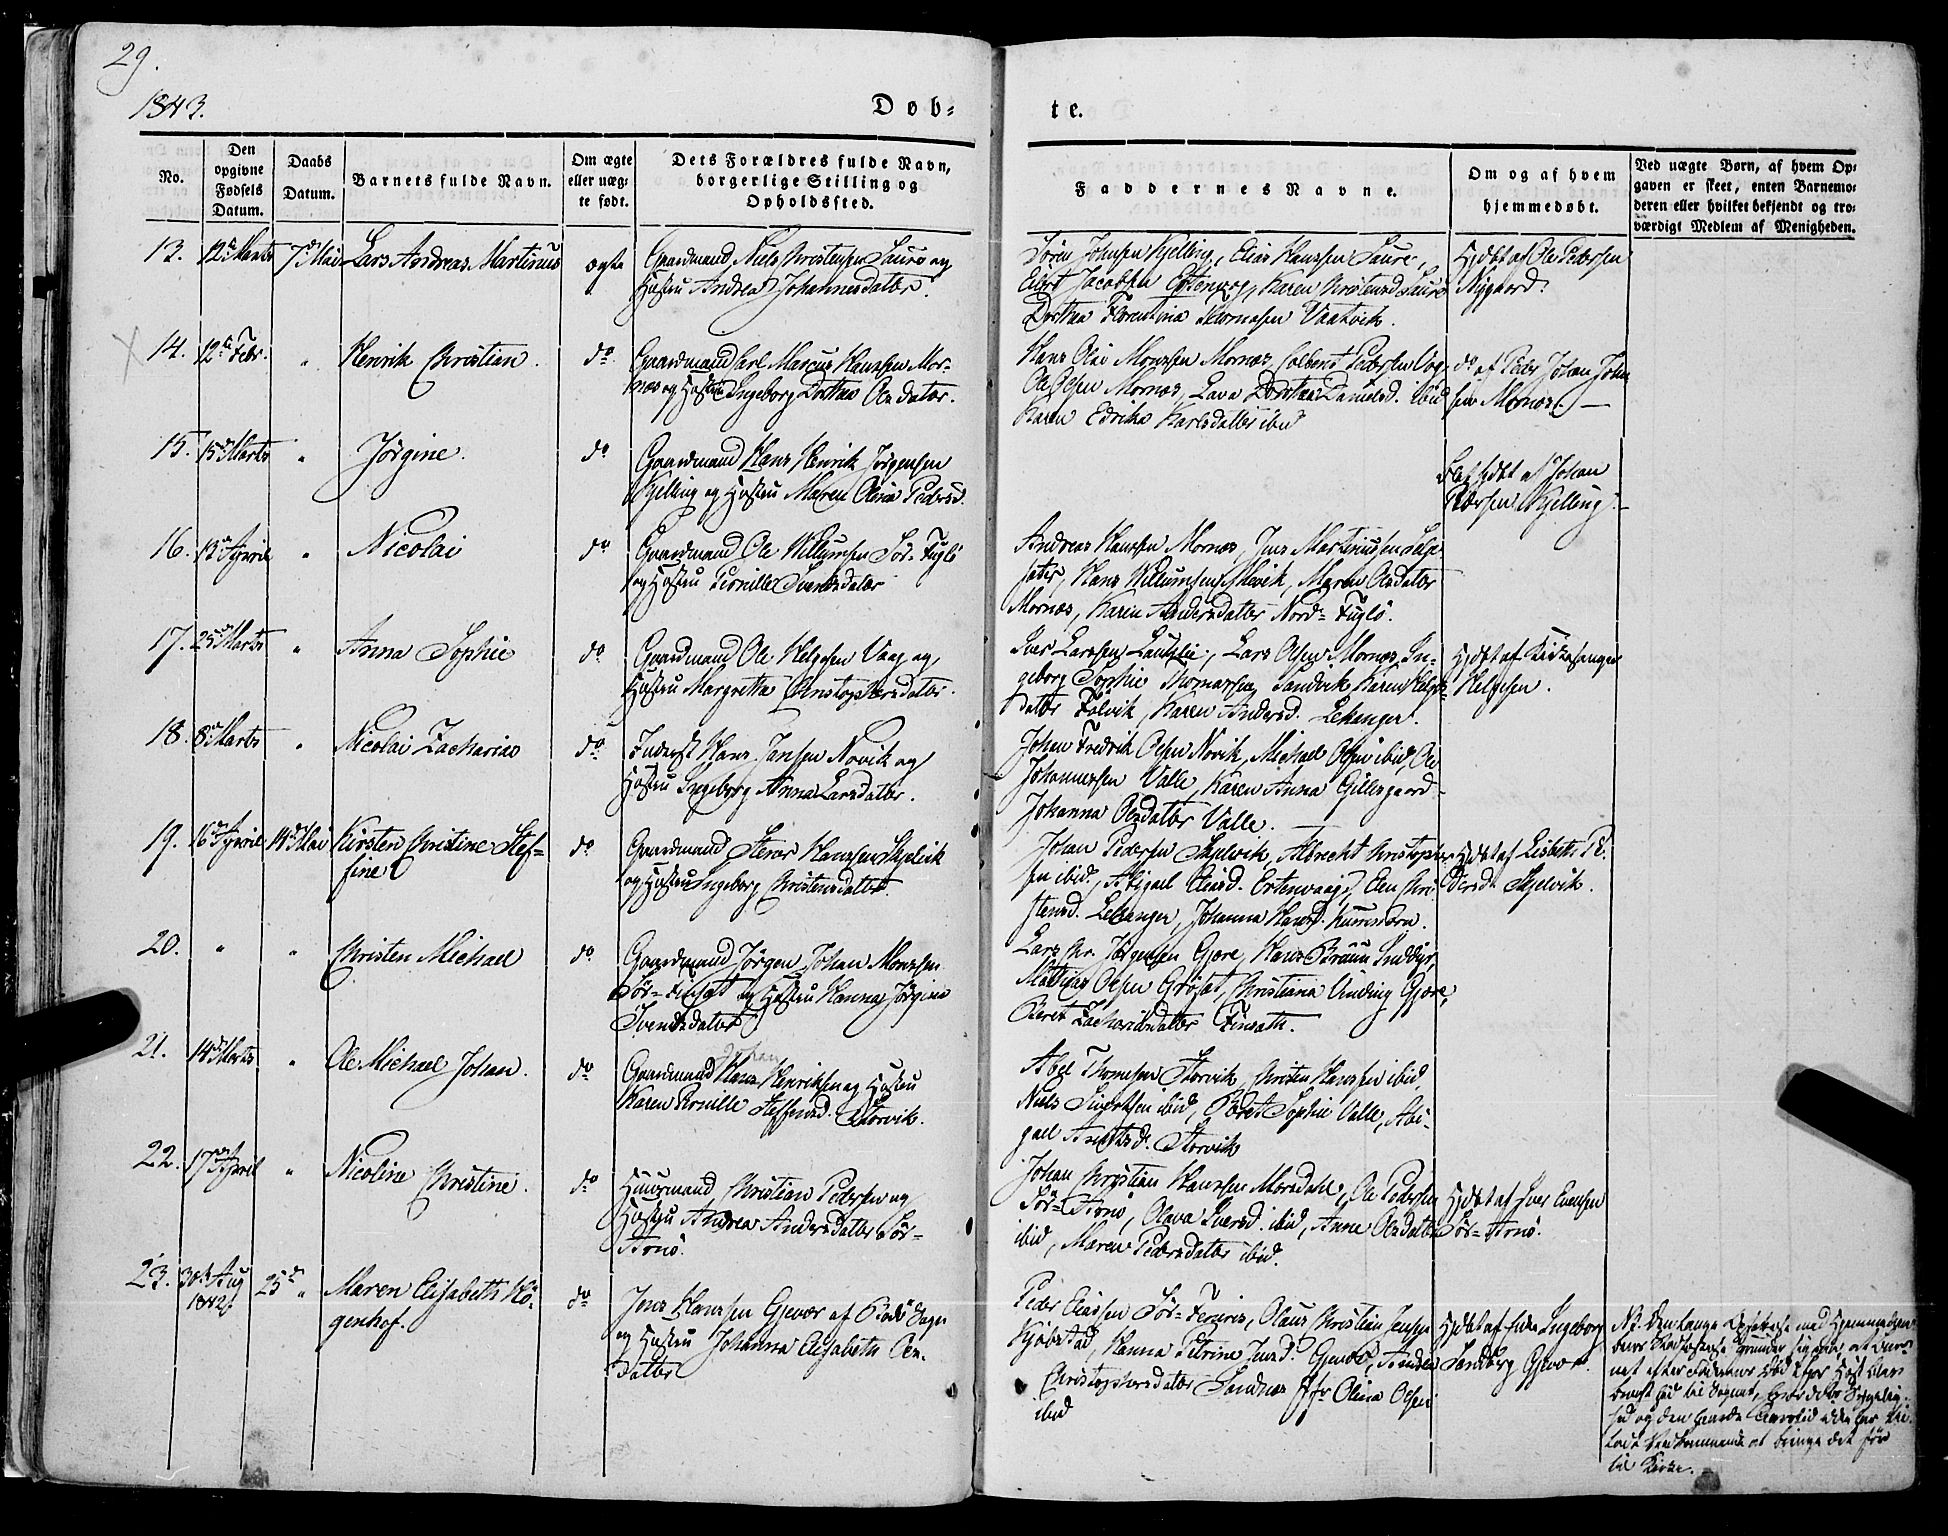 29.
1843.
Døb=
te.
No.
Den opgivne Fødsels Datum.
Daabs Datum.
Barnets fulde Navn.
Om ægte eller uæg= te født.
Dets Forældres fulde Navn, borgerlige Stilling og Opholdssted.
Faddernes Navne.
Om og af hvem hjemmedøbt.
Ved uægte Børn, af hvem Op= gaven er skeet, enten Barnemo= deren eller hvilket bekjendt og tro= værdigt Medlem af Menigheden.
13. 12te Marts 7de Mai Lars Andreas Martinus ægte
Gaardmand Niels Christensen Saura og
Hustru Andrea Johannesdatter.
Sören Johnsen Kjelling, Elias Hanssen Saure,
Eilert Jacobsen, Karen Christensd Saure
Dorthea Florentina Thomasen Vaatvik.
Hjdbt af Ole Pedersen
Nygaard.
14. 12te Febr. " Henrik Christian. do
Gaardmand Carl Marcus Hanssen Mor=
næs og Hustru Ingeborg Dorthea Olsdatter.
Hans Olai Monssen Mornæs, Colbent Pedersen Vog,
Ole Olsen Mornæs, Lava Dorothea Danielsd. ibid
Karen Edvika Karlsdatter ibid
do af Peder Johan John
sen Mornæs. —
15. 15de Marts " Jørgine. do
Gaardmand Hans Henrik Jørgensen
Kjelling og Hustru Maren Olina Pedersd.
Hjdbt af Johan
Pedersen Kjelling. —
16. 13de April " Nicolai do
Gaardmand Ole Willumsen Sör=Fuglö
og Hustru Pernille Svendsdatter
Andreas Hanssen Mornæs, Jens Martinussen
Hans Willumsen, Maren Olsdatter
Mornæs, Karen Andersdatter Nord=Fuglö.
17. 25de Marts " Anna Sophie do
Gaardmand Ole Helgesen Vaag og
Hustru Margretha Christophersdatter.
Iver Larssen, Lars Olsen Mornæs, In=
geborg Sophie Thomassen Sandvik, Karen Helges=
datter, Karen Andersd. Lekanger.
Hjdbt af Kirkesanger
Helgesen.
18. 8de Marts " Nicolai Zacharias do
Inderst Hans Jansen Novik og
Hustru Ingeborg Anna Larsdatter.
Johan Fredrik Olsen Novik, Michael Olsen ibid, Ole
Johannessen Valle, Karen Anna Gillesgaard
Johanna Olsdatter Valle. —
19. 16de April 14de Mai Kirsten Christine Stef=
fine do
Gaardmand Steror Hanssen Skjelvik
og Hustru Ingeborg Christensdatter.
Johan Pedersen Skjelvik, Albrecht Christopher
sen ibid., Abigael Eliasd. Ertenvaag, Elen Chri=
stensd. Lekanger, Johanna Hansd.
Hjdbt af Lisbeth Pe
dersd. Skjelvik.
20. " " Christen Michael do
Gaardmand Jørgen Johan Monssen
Sör=Finset og Hustru Hanna Jörgine
Svendsdatter
Lars Chr. Jørgensen Gjøre, Hans Bruun Inddyr,
Mathias Olsen Gröset, Christiana Vinding Gjøre,
Beret Zachariasdatter Finsæth.
21. 14de Marts " Ole Michael Johan. do
Johan
Gaardmand Hans Henriksen og Hustru
Karen Pernille Steffensd. Storvik.
Abel Thomesen Storvik, Christen Hanssen ibid,
Niels Sivertsen ibid, Beret Sophie Valle, Abi=
gael Arntsd. Storvik
22. 17de April " Nicoline Christine. do
Huusmand Christian Pedersen og
Hustru Andrea Andersdatter Sör=
Arnö.
Johan Christian Hanssen Morsdal, Ole Pedersen
Sör=Arnö, Olava Iversd. ibid, Anne Olsdatter
ibid, Maren Pedersdatter ibid.
Hjdbt af Iver Evensen
Sör=Arnö.
23. 30te Aug
1842. 25de " Maren Elisabeth Hö=
genhof. do
Jens Hanssen Gjevær af Bodö Sogn
og Hustru Johanna Elisabeth Ols
datter
Peder Eliassen Sör=, Olaus Christian Jensen
Kjøbstad, Hanna Petrine Jensd. Gjevær, Andrea
Christophersdatter Sandnæs, Jfr Olina Olsen
ibid
Hjdbt af Ingeborg
Sandberg Gjevær.
NB. Den lange med Hjemmedaa=
bens grunder sig paa, at Bar=
net efter Faderens Död för Höst blev
bragt hid til Sognet, hvor
og den haarde
Vedkommende at bringe det för
til Kirke.